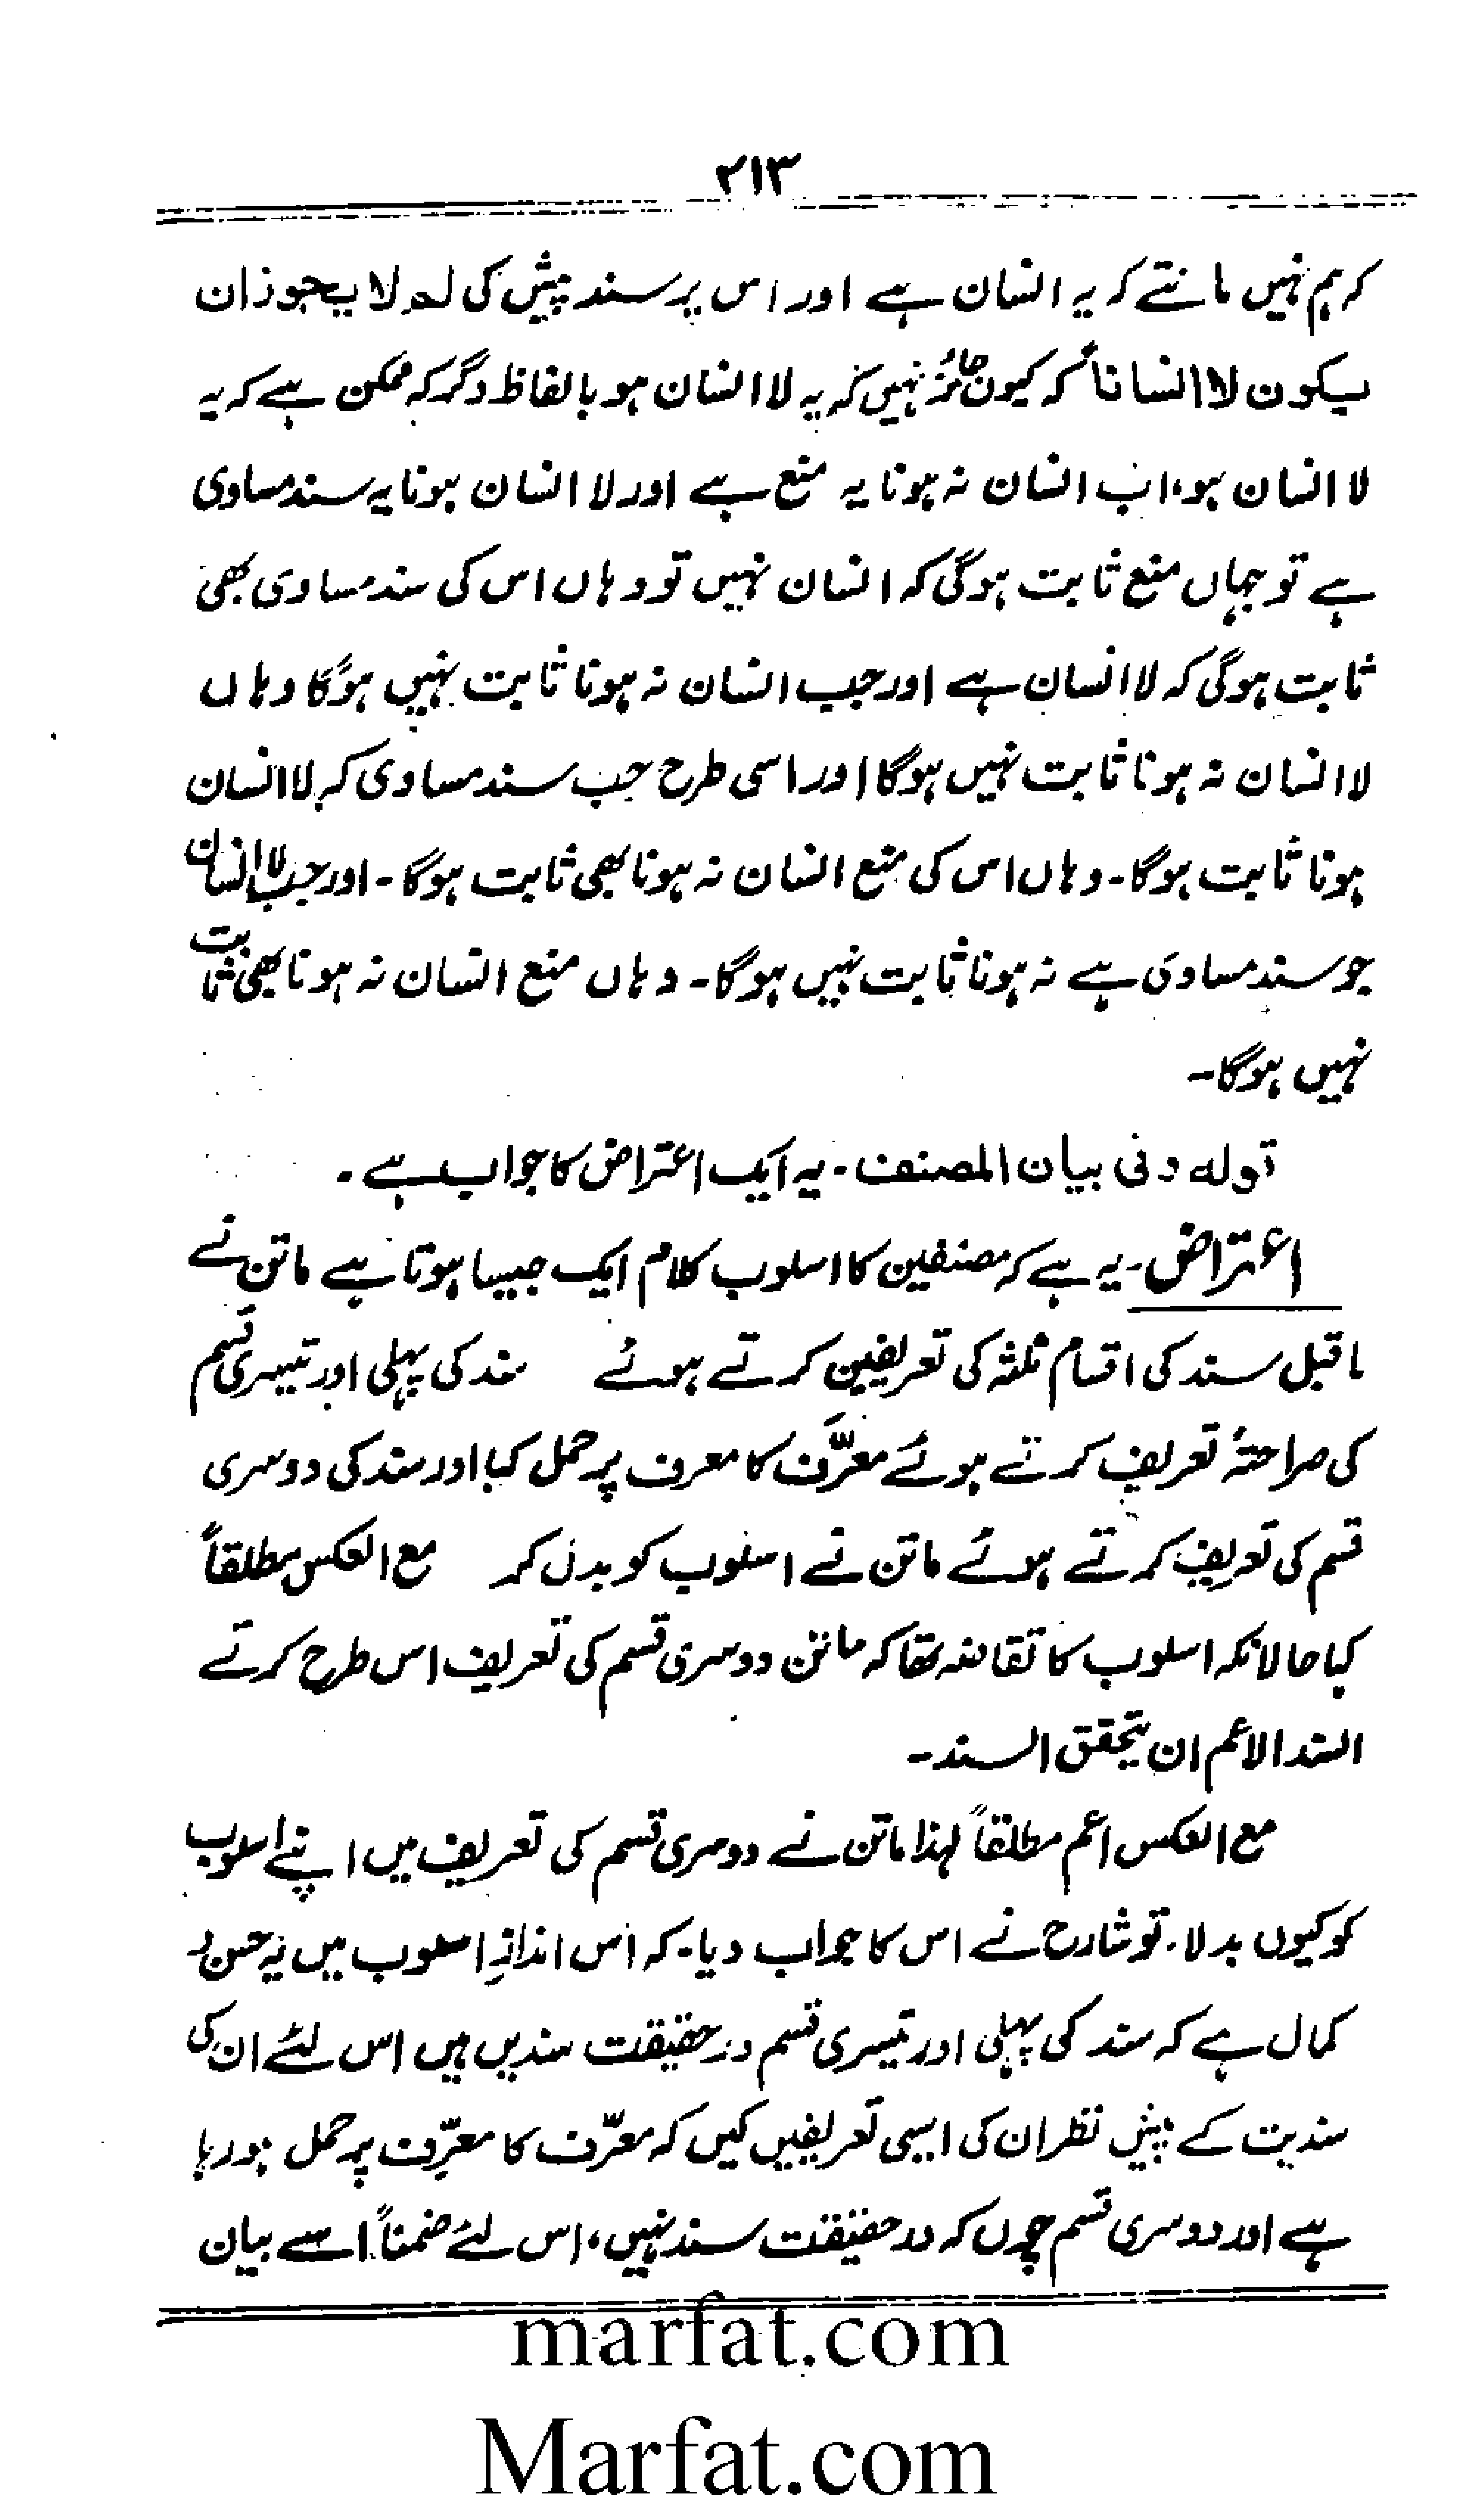 ۲۱۳
کہ ہم نہیں مانتے کہ یہ انسان ہے اور اس پر سند پیش کی لم لا یجوز ان
یکون لا انسانا کہ کیوں جائز نہیں کہ یہ لا انسان ہو بالفاظ دگر کہ ممکن ہے کہ یہ
لا انسان ہو، اب انسان نہ ہونا یہ منع ہے اور لا انسان ہونا یہ سند مساوی
ہے تو جہاں منع ثابت ہوگی کہ انسان نہیں تو وہاں اس کی سند مساوی بھی
ثابت ہوگی کہ لا انسان ہے اور جب انسان نہ ہونا ثابت نہیں ہوگا وہاں
لا انسان نہ ہونا ثابت نہیں ہوگا اور اسی طرح جب سند مساوی کہ لا انسان
ہونا ثابت ہوگا۔ وہاں اس کی منع انسان نہ ہونا بھی ثابت ہوگا۔ اور جب لا انسان
جو سند مساوی ہے نہ ہونا ثابت نہیں ہوگا۔ وہاں منع انسان نہ ہونا بھی ثابت
نہیں ہوگا۔
قولہ وفی بیان المصنف۔ یہ ایک اعتراض کا جواب ہے۔
اعتراض۔ یہ ہے کہ مصنفین کا اسلوب کلام ایک جیسا ہوتا ہے ماتن نے
ماقبل سند کی اقسام ثلثہ کی تعریفیں کرتے ہوئے سند کی پہلی اور تیسری قسم
کی صراحۃً تعریف کرتے ہوئے معرَّف کا معرف پر حمل کیا اور سند کی دوسری
قسم کی تعریف کرتے ہوئے ماتن نے اسلوب کو بدل کر مع العکس مطلقاً
کہا حالانکہ اسلوب کا تقاضہ تھا کہ ماتن دوسری قسم کی تعریف اس طرح کرتے
السند الاعم ان یتحقق السند۔
مع العکس اعم مطلقاً لہذا ماتن نے دوسری قسم کی تعریف میں اپنے اسلوب
کو کیوں بدلا۔ تو شارح نے اس کا جواب دیا۔ کہ اس اندازِ اسلوب میں یہ حسن و
کمال ہے کہ سند کی پہلی اور تیسری قسم درحقیقت سندیں ہیں اس لئے ان کی
سندیت کے پیش نظر ان کی ایسی تعریفیں کیں کہ معرّف کا معرّف پر حمل ہو رہا
ہے اور دوسری قسم چوں کہ درحقیقت سند نہیں، اس لئے ضمناً اسے بیان
marfat.com
Marfat.com